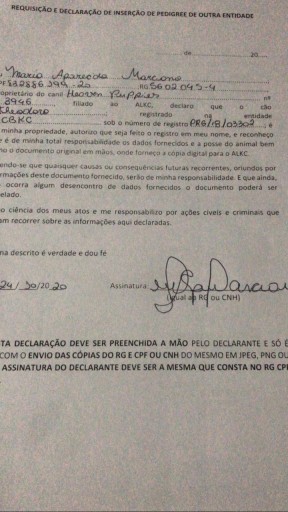 REQUISIÇÃO E DECLARAÇÃO DE INSERÇÃO DE PEDIGREE DE OUTRA ENTIDADE
de 20
Maria Aparecida Marciano
proprietário do canil Heaven Puppies nº
3946 filiado ao ALKC, declaro que o cão
Theodoro registrado na entidade
CBKC sob o número de registro e
minha propriedade, autorizo que seja feito o registro em meu nome, e reconheço
e é de minha total responsabilidade os dados fornecidos e a posse do animal bem
mo o documento original em mãos, onde forneço a cópia digital para o ALKC.
endo-se que quaisquer causas ou consequências futuras recorrentes, oriundos por
rmações deste documento fornecido, serão de minha responsabilidade. E que ainda,
ocorra algum desencontro de dados fornecidos o documento poderá ser
elado.
o ciência dos meus atos e me responsabilizo por ações civeis e criminais que
am recorrer sobre as informações aqui declaradas.
ma descrito é verdade e dou fé
24/10/2020 Assinatura
(igual ao RG ou CNH)
TA DECLARAÇÃO DEVE SER PREENCHIDA A MÃO PELO DECLARANTE E SÓ É
COM O ENVIO DAS CÓPIAS DO RG E CPF OU CNH DO MESMO EM JPEG, PNG OU
ASSINATURA DO DECLARANTE DEVE SER A MESMA QUE CONSTA NO RG CPF